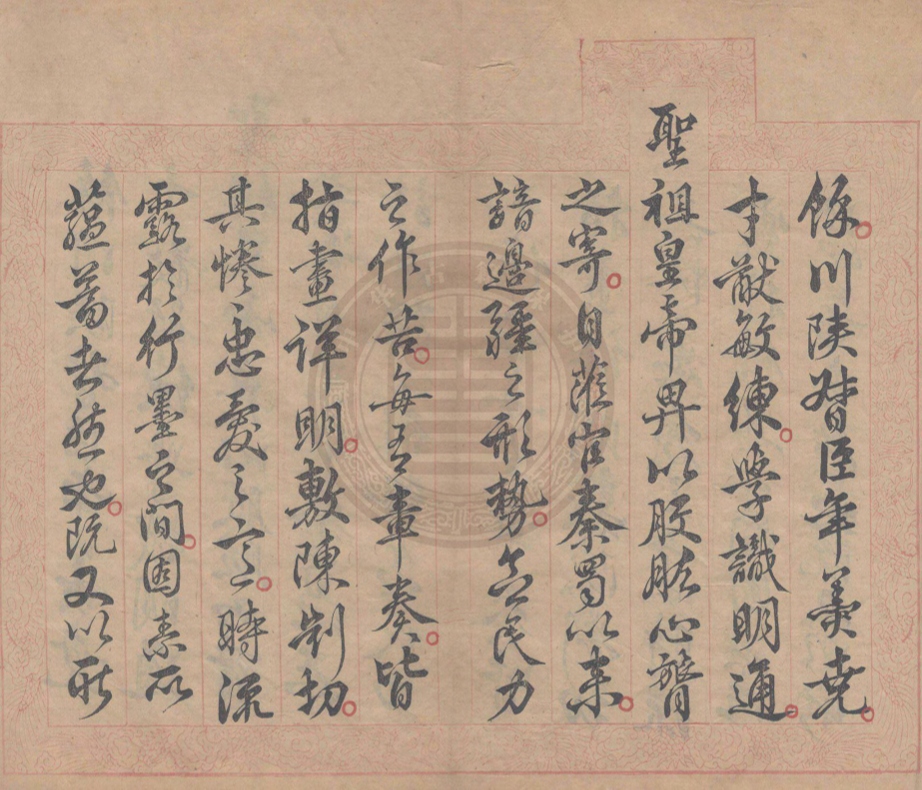 餘。川陝督臣年羹堯。
才猷敏練。學識明通。
聖祖皇帝畀以股肱心膂
之寄。自蒞官秦蜀以來。
諳邊疆之形勢。念民力
之作苦。每有章奏。皆
指畫詳明。敷陳剴切。
其惓々忠愛之意。時流
露於行墨之間。固素所
蘊蓄者然也。既又以所